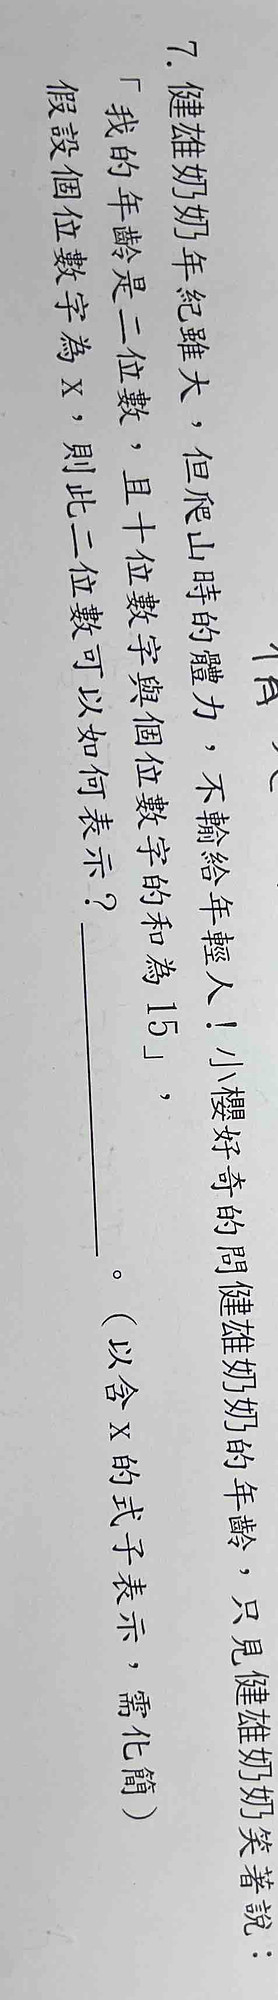 7. 健雄奶奶年紀雖大，但爬山時的體力，不輸給年輕人！小櫻好奇的問健雄奶奶的年齡，只見健雄奶奶笑著說：
「我的年齡是二位數，且十位數字與個位數字的和為 15」，
假設個位數字為 x，則此二位數可以如何表示？＿＿＿＿＿＿。（以含 x 的式子表示，需化簡）